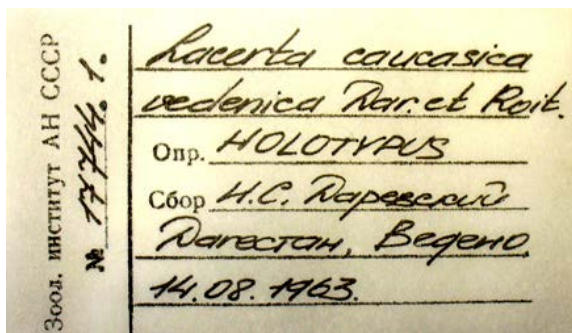 Зоол. институт АН СССР
№ 17744.1.
Lacerta caucasica
vedenica Dar. et Roit.
Опр. HOLOTYPUS
Сбор И.С. Даревский
Дагестан, Ведено
14.08.1963.